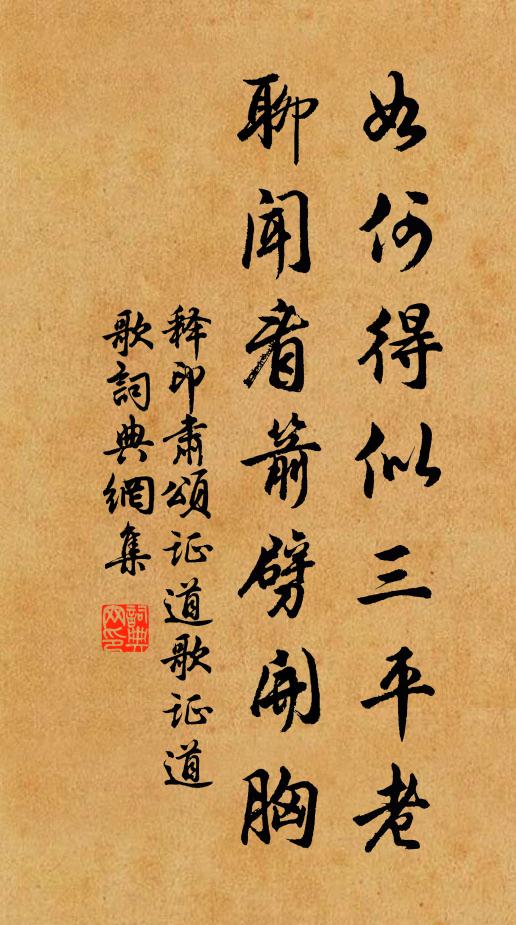 如何得似三平老
聊闻看箭劈开胸
释印肃颂证道歌证道
歌词典網集
詞典网印